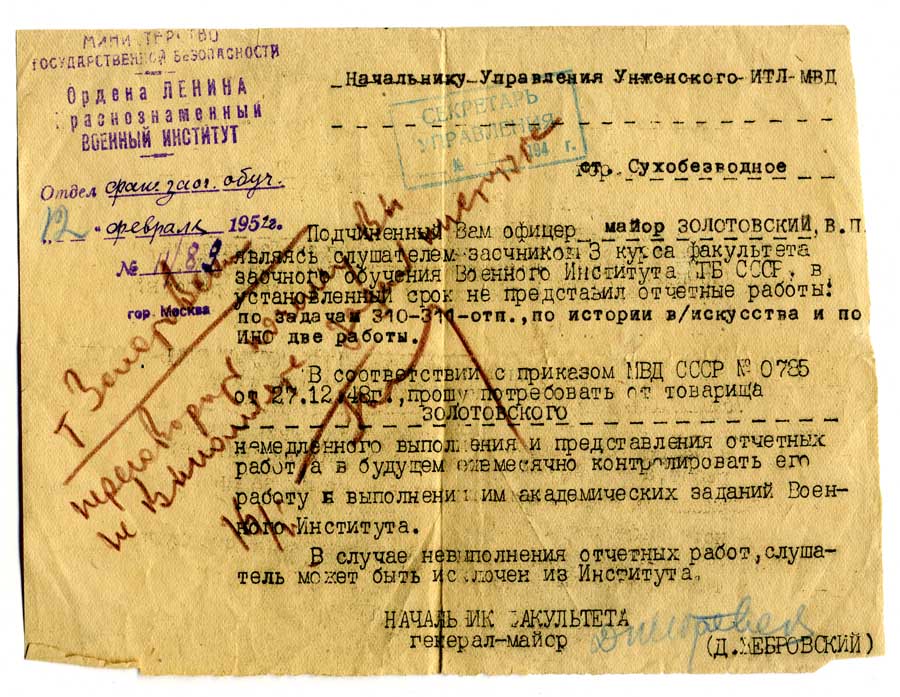 МИНИСТЕРСТВО
ГОСУДАРСТВЕННОЙ БЕЗОПАСНОСТИ
Ордена ЛЕНИНА
раснознаменный
ВОЕННЫЙ ИНСТИТУТ
Отдел фак. заоч. обуч.
12 " февраля 1952г.
№ 11/83
гор. Москва
Начальнику Управления Унженского ИТЛ МВД
СЕКРЕТАРЬ
УПРАВЛЕНИЯ
№ 194 г.
ст. Сухобезводное
Подчиненный Вам офицер майор ЗОЛОТОВСКИЙ, В.П.
являясь слушателем засчником 3 курса факультета
заочного обучения Военного Института МГБ СССР, в
установленный срок не представил отчетные работы:
по задачам 310-311-отп., по истории в/искусства и по
ИНО две работы.
В соответствии с приказом МВД СССР № 0785
от 27.12.48г., прошу потребовать от товарища
ЗОЛОТОВСКОГО
немедленного выполнения и представления отчетных
работ, а в будущем ежемесячно контролировать его
работу в выполнении им академических заданий Воен-
ного Института.
В случае невыполнения отчетных работ, слуша-
тель может быть исключен из Института.
НАЧАЛЬНИК ФАКУЛЬТЕТА
генерал-майор
(Д. ЖЕБРОВСКИЙ)
почему Вы
не выполните